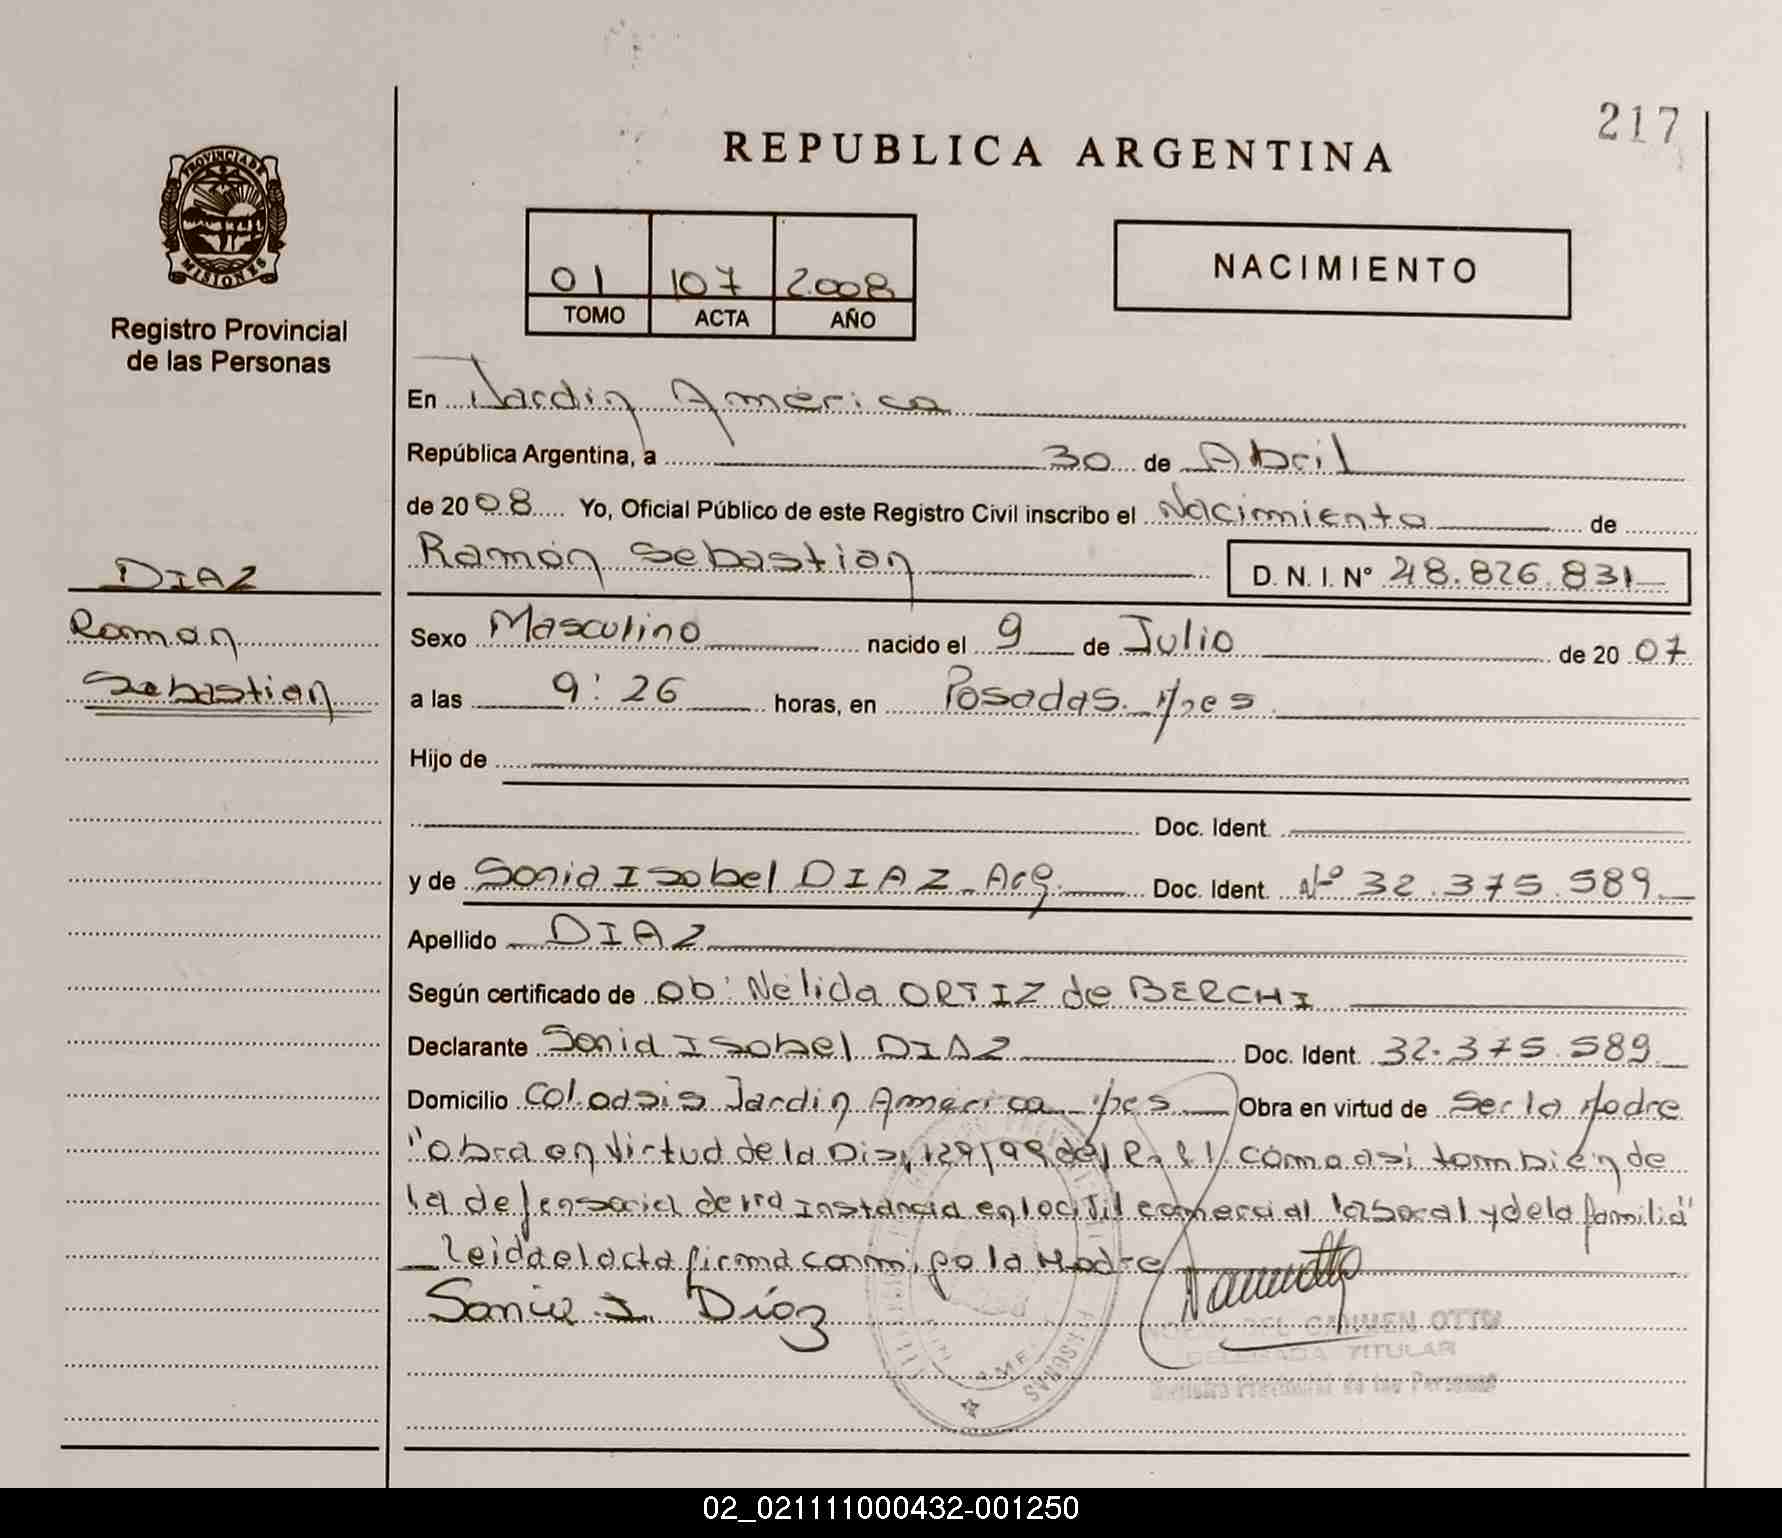 217
REPUBLICA ARGENTINA
PROVINCIA DE
MISIONES
Registro Provincial
de las Personas
01 107 2008
TOMO ACTA AÑO
NACIMIENTO
En Jardin América
República Argentina, a 30 de Abril
de 2008 Yo, Oficial Público de este Registro Civil inscribo el Nacimiento de
Ramón Sebastian D. N. I. Nº 48.826.831
DIAZ
Ramón
Sebastian
Sexo Masculino nacido el 9 de Julio de 2007
a las 9:26 horas, en Posadas. Mnes
Hijo de
Doc. Ident.
y de Sonia Isabel DIAZ Arg. Doc. Ident. Nº 32.375.589
Apellido DIAZ
Según certificado de Ob: Nélida ORTIZ de BERCHI
Declarante Sonia Isabel DIAZ Doc. Ident. 32.375.589
Domicilio Col. Oasis Jardin América Mnes Obra en virtud de Ser la Madre
"obra en Virtud de la Disp. 129/99 del como asi tambien de
la defensoria de 1ra Instancia en lo civil comercial laboral y de la familia"
Leida el acta firma conmigo la Madre
Sonia I. Díaz
DEL CARMEN OTTO
DELEGADA TITULAR
Registro Provincial de las Personas
02_021111000432-001250